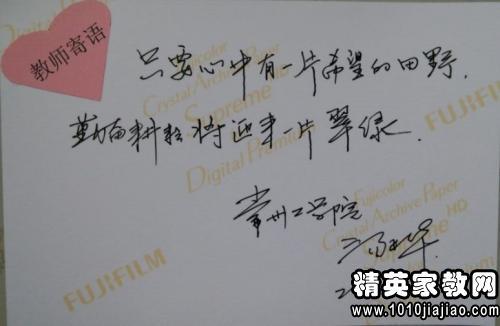 教师寄语
只要心中有一片希望的田野.
勤奋耕耘将迎来一片翠绿.
常州工学院
Fujicolor
Crystal Archive Paper
Supreme HD
Digital Premium
FUJIFILM
Fujicolor
Crystal Archive Paper
Supreme HD
Digital Premium
FUJIFILM
精英家教网
www.1010jiajiao.com